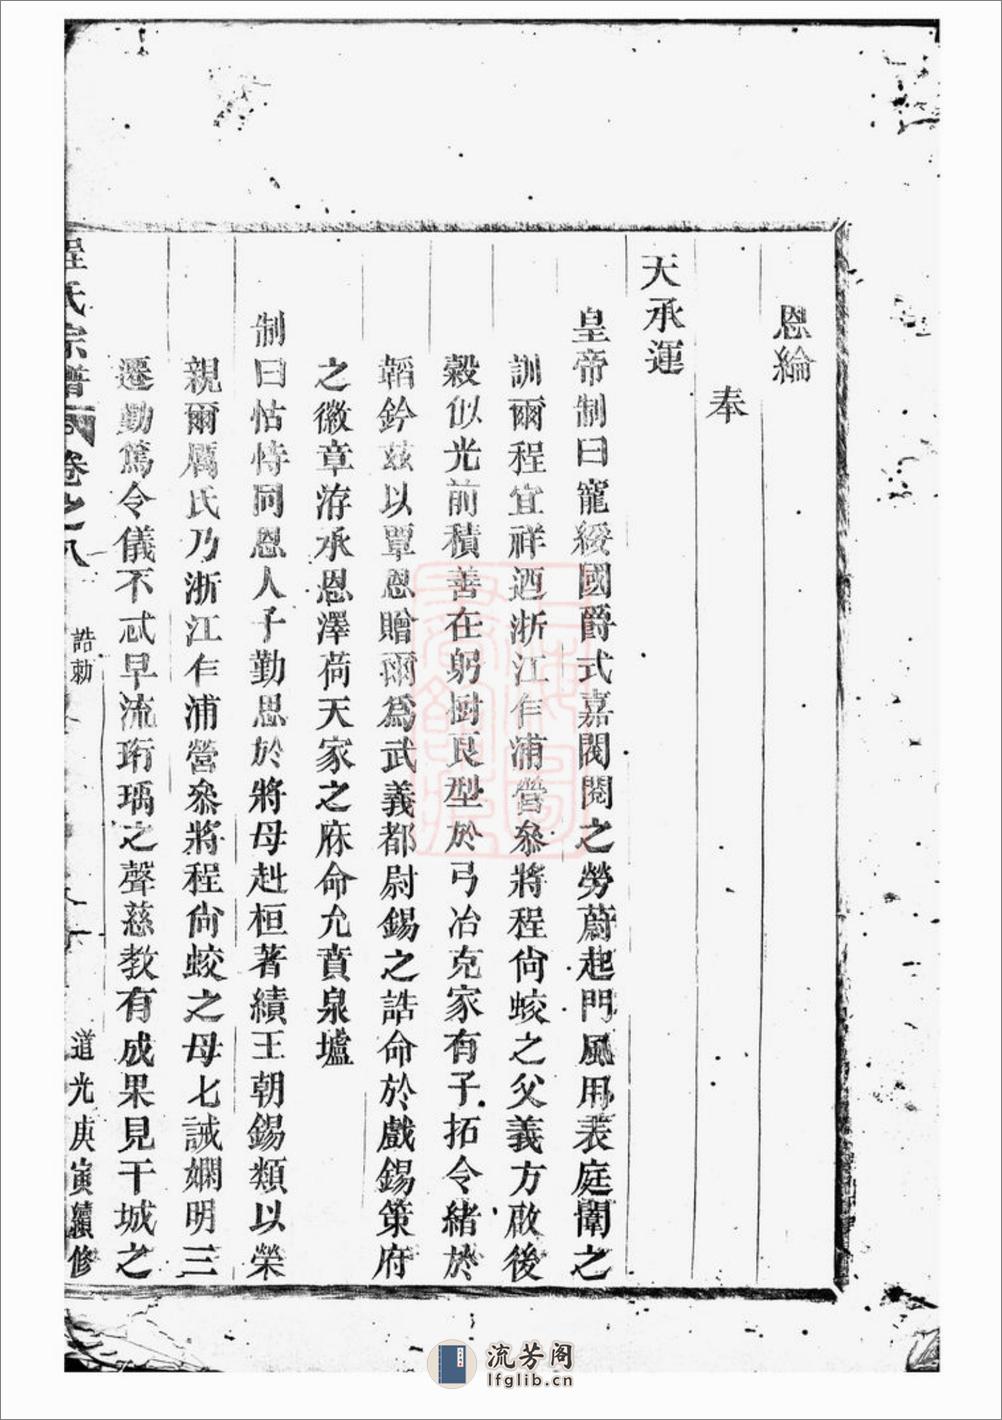 恩綸
奉
天承運
皇帝制曰寵綏國爵式嘉閥閱之勞蔚起門風用表庭闈之
訓爾程宜祥迺浙江乍浦營叅將程尙蛟之父義方啟後
穀似光前積善在躬樹良型於弓冶克家有子拓令緒於
韜鈐茲以覃恩贈爾爲武義都尉錫之誥命於戲錫策府
之徽章洊承恩澤荷天家之庥命允賁泉壚
制曰怙恃同恩人子勤思於將母赳桓著績王朝錫類以榮
親爾厲氏乃浙江乍浦營叅將程尙蛟之母七誡嫻明三
遷勤篤令儀不忒早流珩瑀之聲慈教有成果見干城之
程氏宗譜 卷之八 誥勅 道光庚寅續修
流芳阁
lfglib.cn